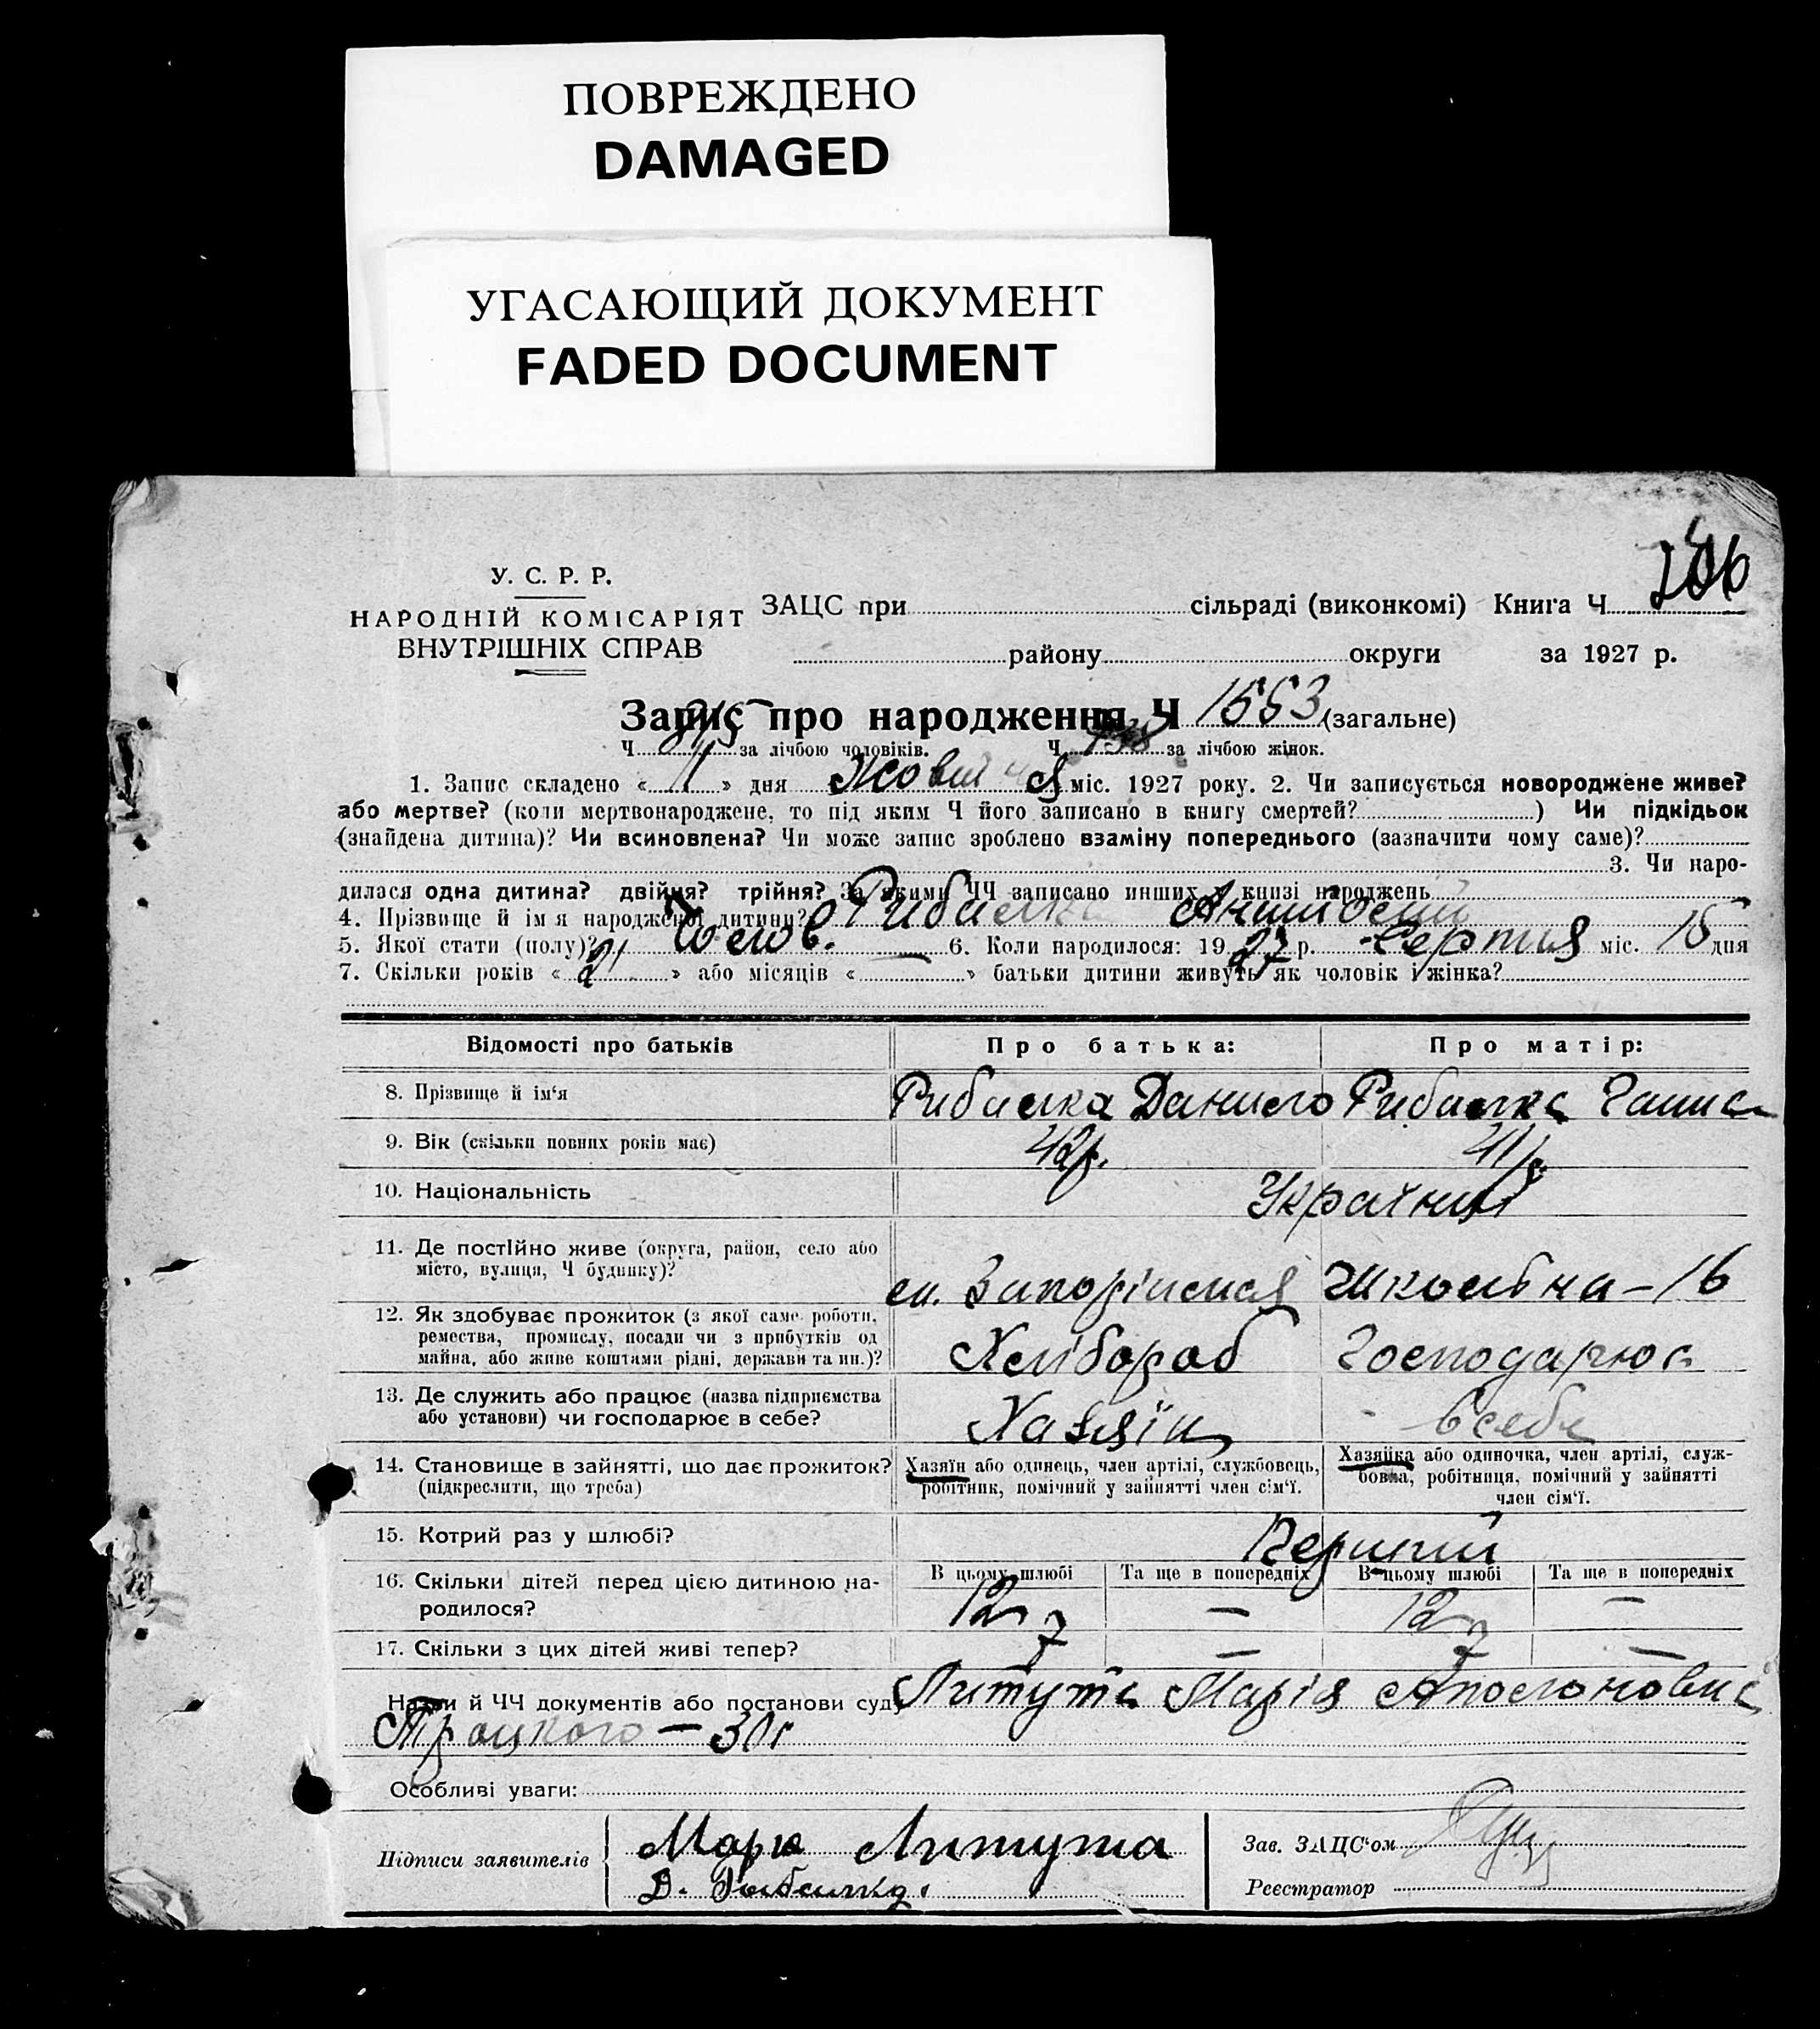 ПОВРЕЖДЕНО
DAMAGED
УГАСАЮЩИЙ ДОКУМЕНТ
FADED DOCUMENT
У. С. Р. Р.
НАРОДНІЙ КОМІСАРІЯТ
ВНУТРІШНІХ СПРАВ
ЗАЦС при сільраді (виконкомі) Книга Ч
району округи за 1927 р.
Запис про народження Ч 1553 (загальне)
Ч 815 за лічбою чоловіків. Ч 738 за лічбою жінок.
1. Запис складено « 11 » дня Жовтня міс. 1927 року. 2. Чи записується новороджене живе?
або мертве? (коли мертвонароджене, то під яким Ч його записано в книгу смертей? ) Чи підкідьок
(знайдена дитина)? Чи всиновлена? Чи може запис зроблено взаміну попереднього (зазначити чому саме)?
3. Чи наро-
дилася одна дитина? двійня? трійня? За якими ЧЧ записано инших у книзі народжень
4. Прізвище й ім я народженої дитини? Рибалка Анатолій
5. Якої стати (полу)? Чолов. 6. Коли народилося: 1927 р. Серпня міс. 15 дня
7. Скільки років « 21 » або місяців « — » батьки дитини живуть як чоловік і жінка?
Відомості про батьків Про батька: Про матір:
8. Прізвище й ім'я Рибалка Данило Рибалка Ганна
9. Вік (скільки повних років має) 42р. 41р.
10. Національність Українці
11. Де постійно живе (округа, район, село або
місто, вулиця, Ч будинку)? Школьна - 16
12. Як здобуває прожиток (з якої саме роботи,
ремества, промислу, посади чи з прибутків од
майна, або живе коштами рідні, держави та ин.)? Хлібороб Господарює
13. Де служить або працює (назва підприємства
або установи) чи господарює в себе? Хазяїн в себе
14. Становище в зайнятті, що дає прожиток?
(підкреслити, що треба)
Хазяїн або одинець, член артілі, службовець,
робітник, помічний у зайнятті член сім'ї.
Хазяйка або одиночка, член артілі, служ-
бовка, робітниця, помічний у зайнятті
член сім'ї.
15. Котрий раз у шлюбі? Перший
В цьому шлюбі Та ще в попередніх В цьому шлюбі Та ще в попередніх
16. Скільки дітей перед цією дитиною на-
родилося? 12 — 12 —
17. Скільки з цих дітей живі тепер? 7 — 7 —
Назви й ЧЧ документів або постанови суду Литута Марія
Троцкого — 30
Особливі уваги:
Підписи заявителів Марія Литута
Д. Рибалка.
Зав. ЗАЦС'ом
Реєстратор